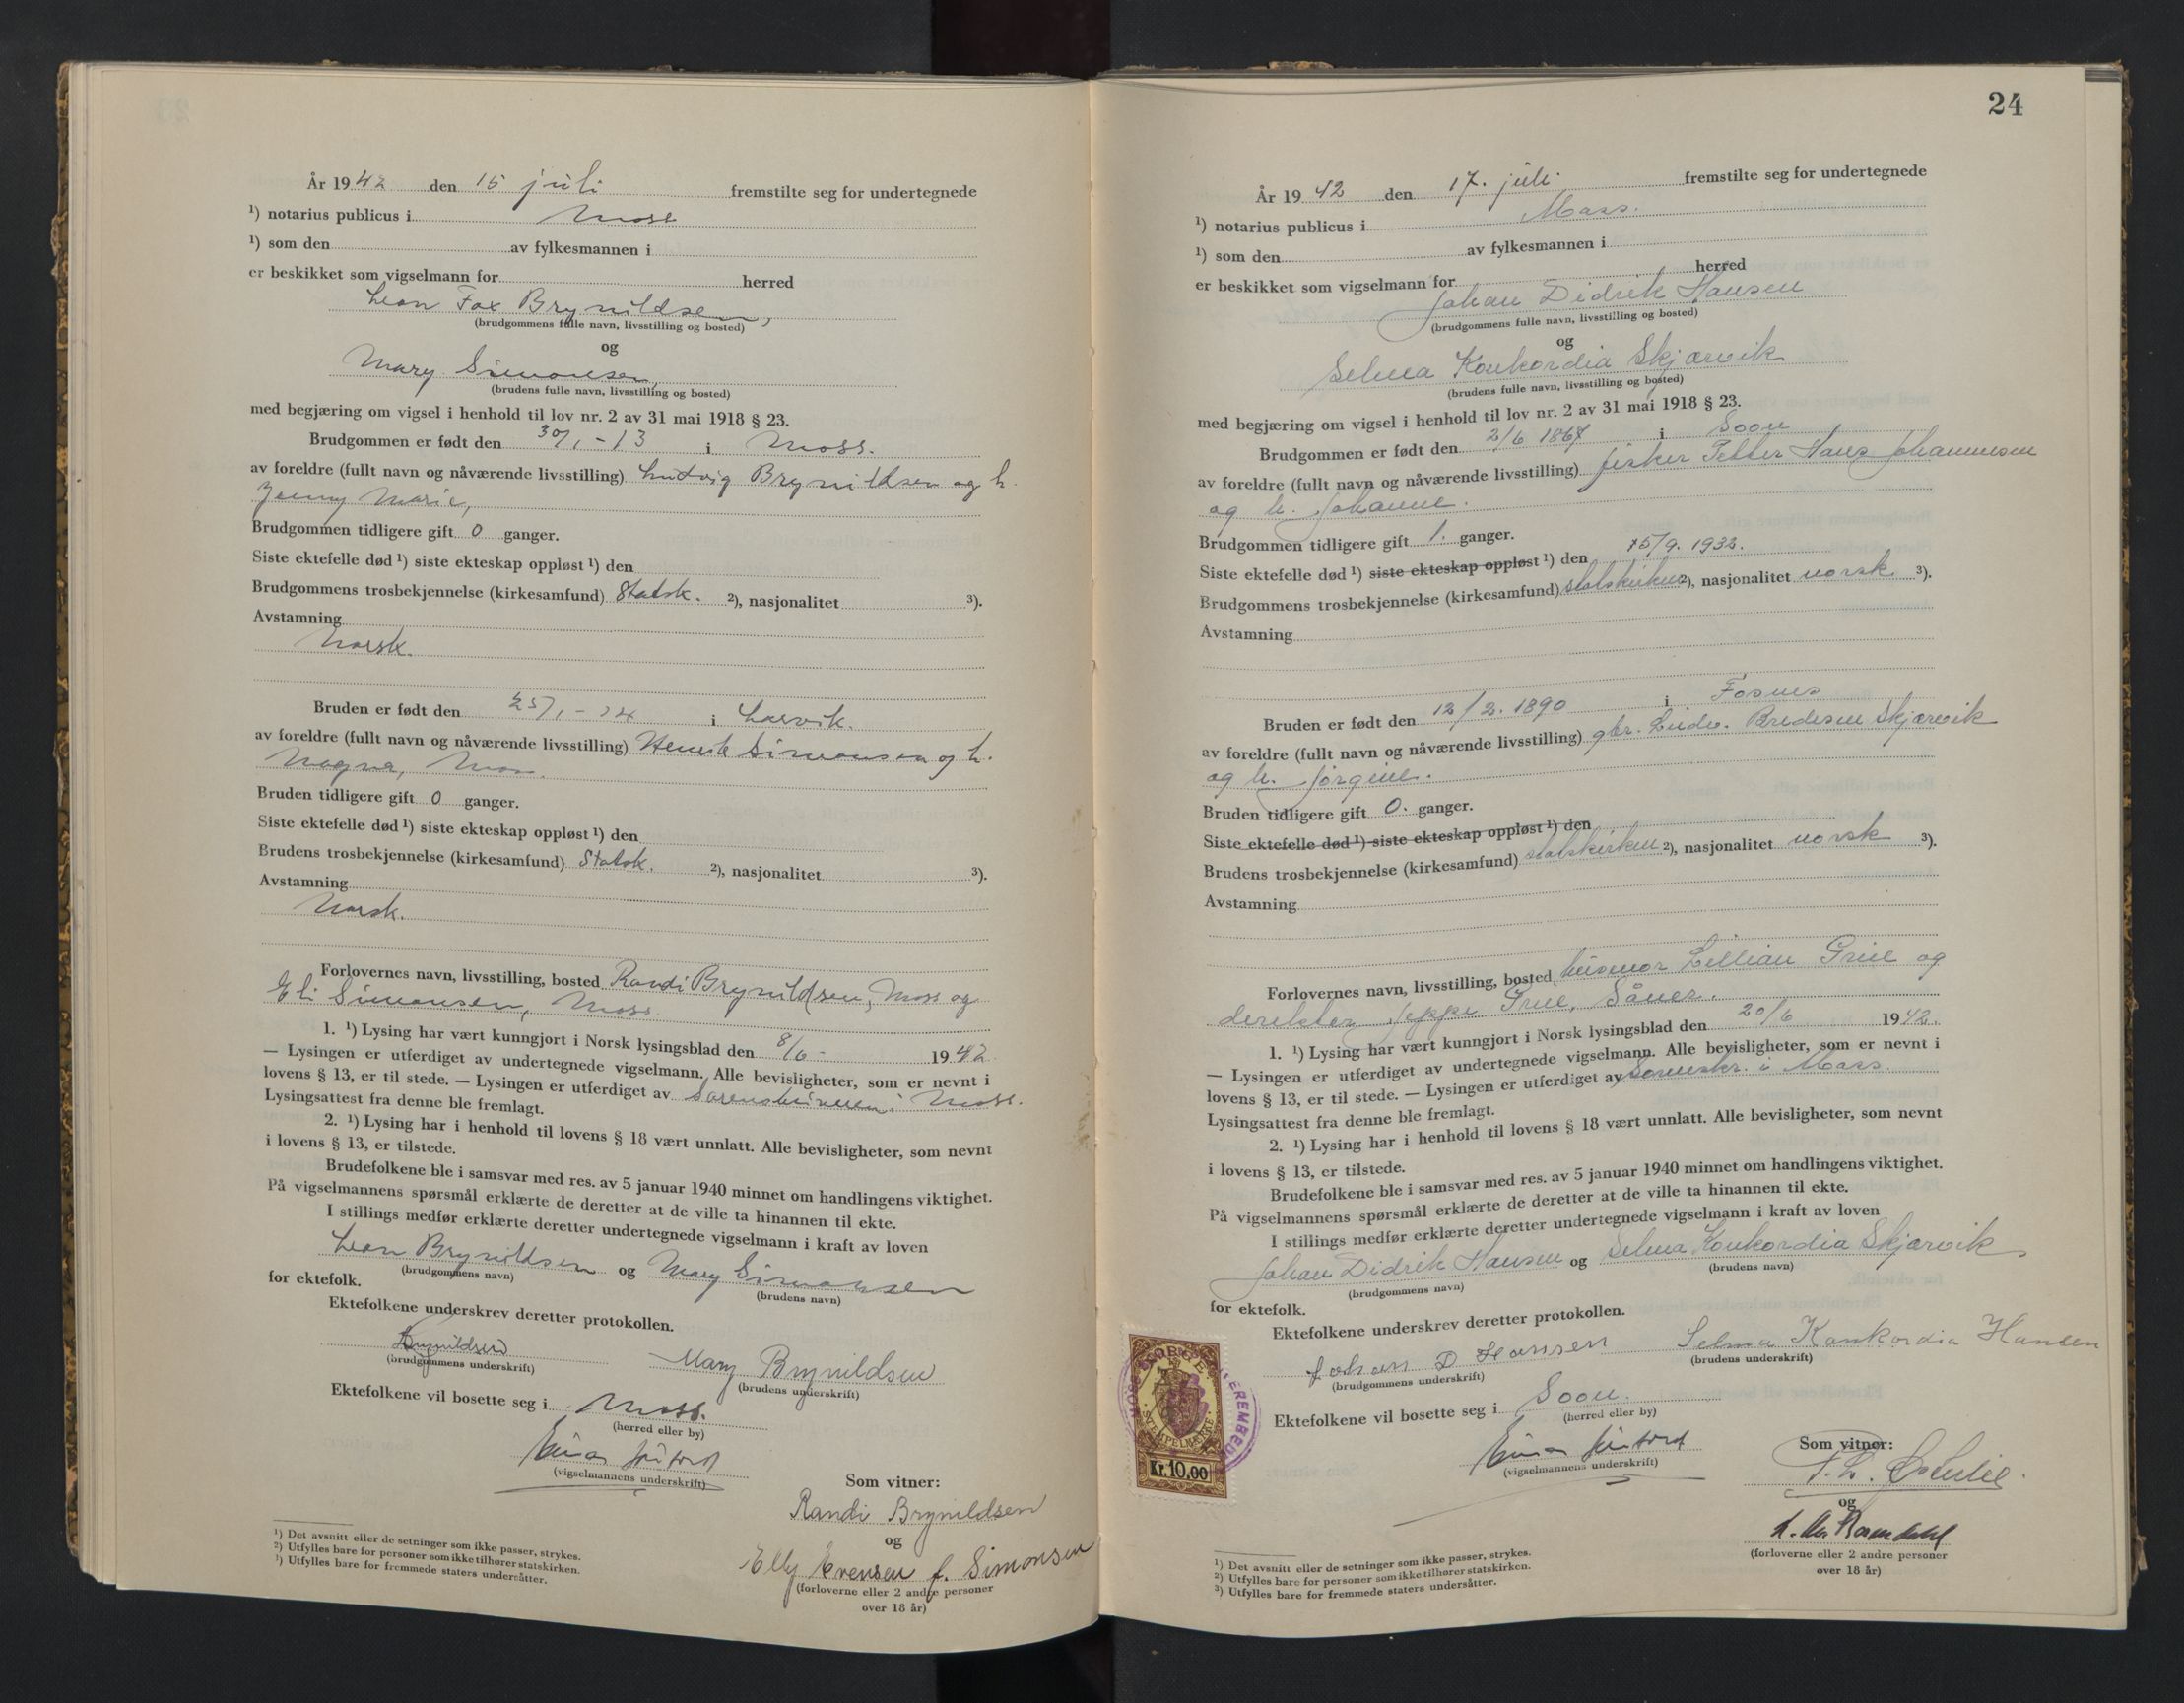 År 1942 den 15 juli fremstilte seg for undertegnede
¹) notarius publicus i Moss
¹) som den av fylkesmannen i
er beskikket som vigselmann for herred
Leon Fox Brynildsen,
(brudgommens fulle navn, livsstilling og bosted)
og
Mary Simonsen,
(brudens fulle navn, livsstilling og bosted)
med begjæring om vigsel i henhold til lov nr. 2 av 31 mai 1918 § 23.
Brudgommen er født den 30/1-13 i Moss.
av foreldre (fullt navn og nåværende livsstilling) Ludvig Brynildsen og h.
Jenny Marie,
Brudgommen tidligere gift 0 ganger.
Siste ektefelle død ¹) siste ekteskap oppløst ¹) den
Brudgommens trosbekjennelse (kirkesamfund) Statsk. ²), nasjonalitet ³).
Avstamning
Norsk.
Bruden er født den 25/1-24 i Larvik.
av foreldre (fullt navn og nåværende livsstilling) Henrik Simonsen og h.
Magna, Moss.
Bruden tidligere gift 0 ganger.
Siste ektefelle død ¹) siste ekteskap oppløst ¹) den
Brudens trosbekjennelse (kirkesamfund) Statsk. ²), nasjonalitet ³).
Avstamning
Norsk.
Forlovernes navn, livsstilling, bosted Randi Brynildsen, Moss og
Eli Simonsen, Moss.
1. ¹) Lysing har vært kunngjort i Norsk lysingsblad den 8/6- 1942
— Lysingen er utferdiget av undertegnede vigselmann. Alle bevisligheter, som er nevnt i
lovens § 13, er til stede. — Lysingen er utferdiget av Sorenskriveren i Moss.
Lysingsattest fra denne ble fremlagt.
2. ¹) Lysing har i henhold til lovens § 18 vært unnlatt. Alle bevisligheter, som nevnt
i lovens § 13, er tilstede.
Brudefolkene ble i samsvar med res. av 5 januar 1940 minnet om handlingens viktighet.
På vigselmannens spørsmål erklærte de deretter at de ville ta hinannen til ekte.
I stillings medfør erklærte deretter undertegnede vigselmann i kraft av loven
Leon Brynildsen og Mary Simonsen
(brudgommens navn) (brudens navn)
for ektefolk.
Ektefolkene underskrev deretter protokollen.
Brynildsen Mary Brynildsen
(brudgommens underskrift) (brudens underskrift)
Ektefolkene vil bosette seg i Moss.
(herred eller by)
(vigselmannens underskrift)
Som vitner:
Randi Brynildsen
og
Elly Evensen f. Simonsen
(forloverne eller 2 andre personer
over 18 år)
¹) Det avsnitt eller de setninger som ikke passer, strykes.
²) Utfylles bare for personer som ikke tilhører statskirken.
³) Utfylles bare for fremmede staters undersåtter.
24
År 1942 den 17. juli. fremstilte seg for undertegnede
¹) notarius publicus i Moss.
¹) som den av fylkesmannen i
er beskikket som vigselmann for herred
Johan Didrik Hansen
(brudgommens fulle navn, livsstilling og bosted)
og
Selma Konkordia Skjærvik
(brudens fulle navn, livsstilling og bosted)
med begjæring om vigsel i henhold til lov nr. 2 av 31 mai 1918 § 23.
Brudgommen er født den 2/6 1867 i Soon
av foreldre (fullt navn og nåværende livsstilling) fisker Petter Hans Johannesen
og h. Johanne.
Brudgommen tidligere gift 1. ganger.
Siste ektefelle død ¹) siste ekteskap oppløst ¹) den 15/9. 1932.
Brudgommens trosbekjennelse (kirkesamfund) statskirken ²), nasjonalitet norsk ³).
Avstamning
Bruden er født den 12/2. 1890 i Fosnes
av foreldre (fullt navn og nåværende livsstilling) gbr. Ludv. Bredesen Skjærvik
og h. Jørgine.
Bruden tidligere gift 0. ganger.
Siste ektefelle død ¹) siste ekteskap oppløst ¹) den
Brudens trosbekjennelse (kirkesamfund) statskirken ²), nasjonalitet norsk ³).
Avstamning
Forlovernes navn, livsstilling, bosted husmor Lillian og
direktør Jeppe Såner.
1. ¹) Lysing har vært kunngjort i Norsk lysingsblad den 20/6 1942.
— Lysingen er utferdiget av undertegnede vigselmann. Alle bevisligheter, som er nevnt i
lovens § 13, er til stede. — Lysingen er utferdiget av Sorenskr. i Moss.
Lysingsattest fra denne ble fremlagt.
2. ¹) Lysing har i henhold til lovens § 18 vært unnlatt. Alle bevisligheter, som nevnt
i lovens § 13, er tilstede.
Brudefolkene ble i samsvar med res. av 5 januar 1940 minnet om handlingens viktighet.
På vigselmannens spørsmål erklærte de deretter at de ville ta hinannen til ekte.
I stillings medfør erklærte deretter undertegnede vigselmann i kraft av loven
Johan Didrik Hansen og Selma Konkordia Skjærvik
(brudgommens navn) (brudens navn)
for ektefolk.
Ektefolkene underskrev deretter protokollen.
Johan D Hansen Selma Konkordia Hansen
(brudgommens underskrift) (brudens underskrift)
Ektefolkene vil bosette seg i Soon.
(herred eller by)
(vigselmannens underskrift)
Som vitner:
og
(forloverne eller 2 andre personer
over 18 år)
NORGE
STEMPELMERKE
Kr. 10.00
¹) Det avsnitt eller de setninger som ikke passer, strykes.
²) Utfylles bare for personer som ikke tilhører statskirken.
³) Utfylles bare for fremmede staters undersåtter.